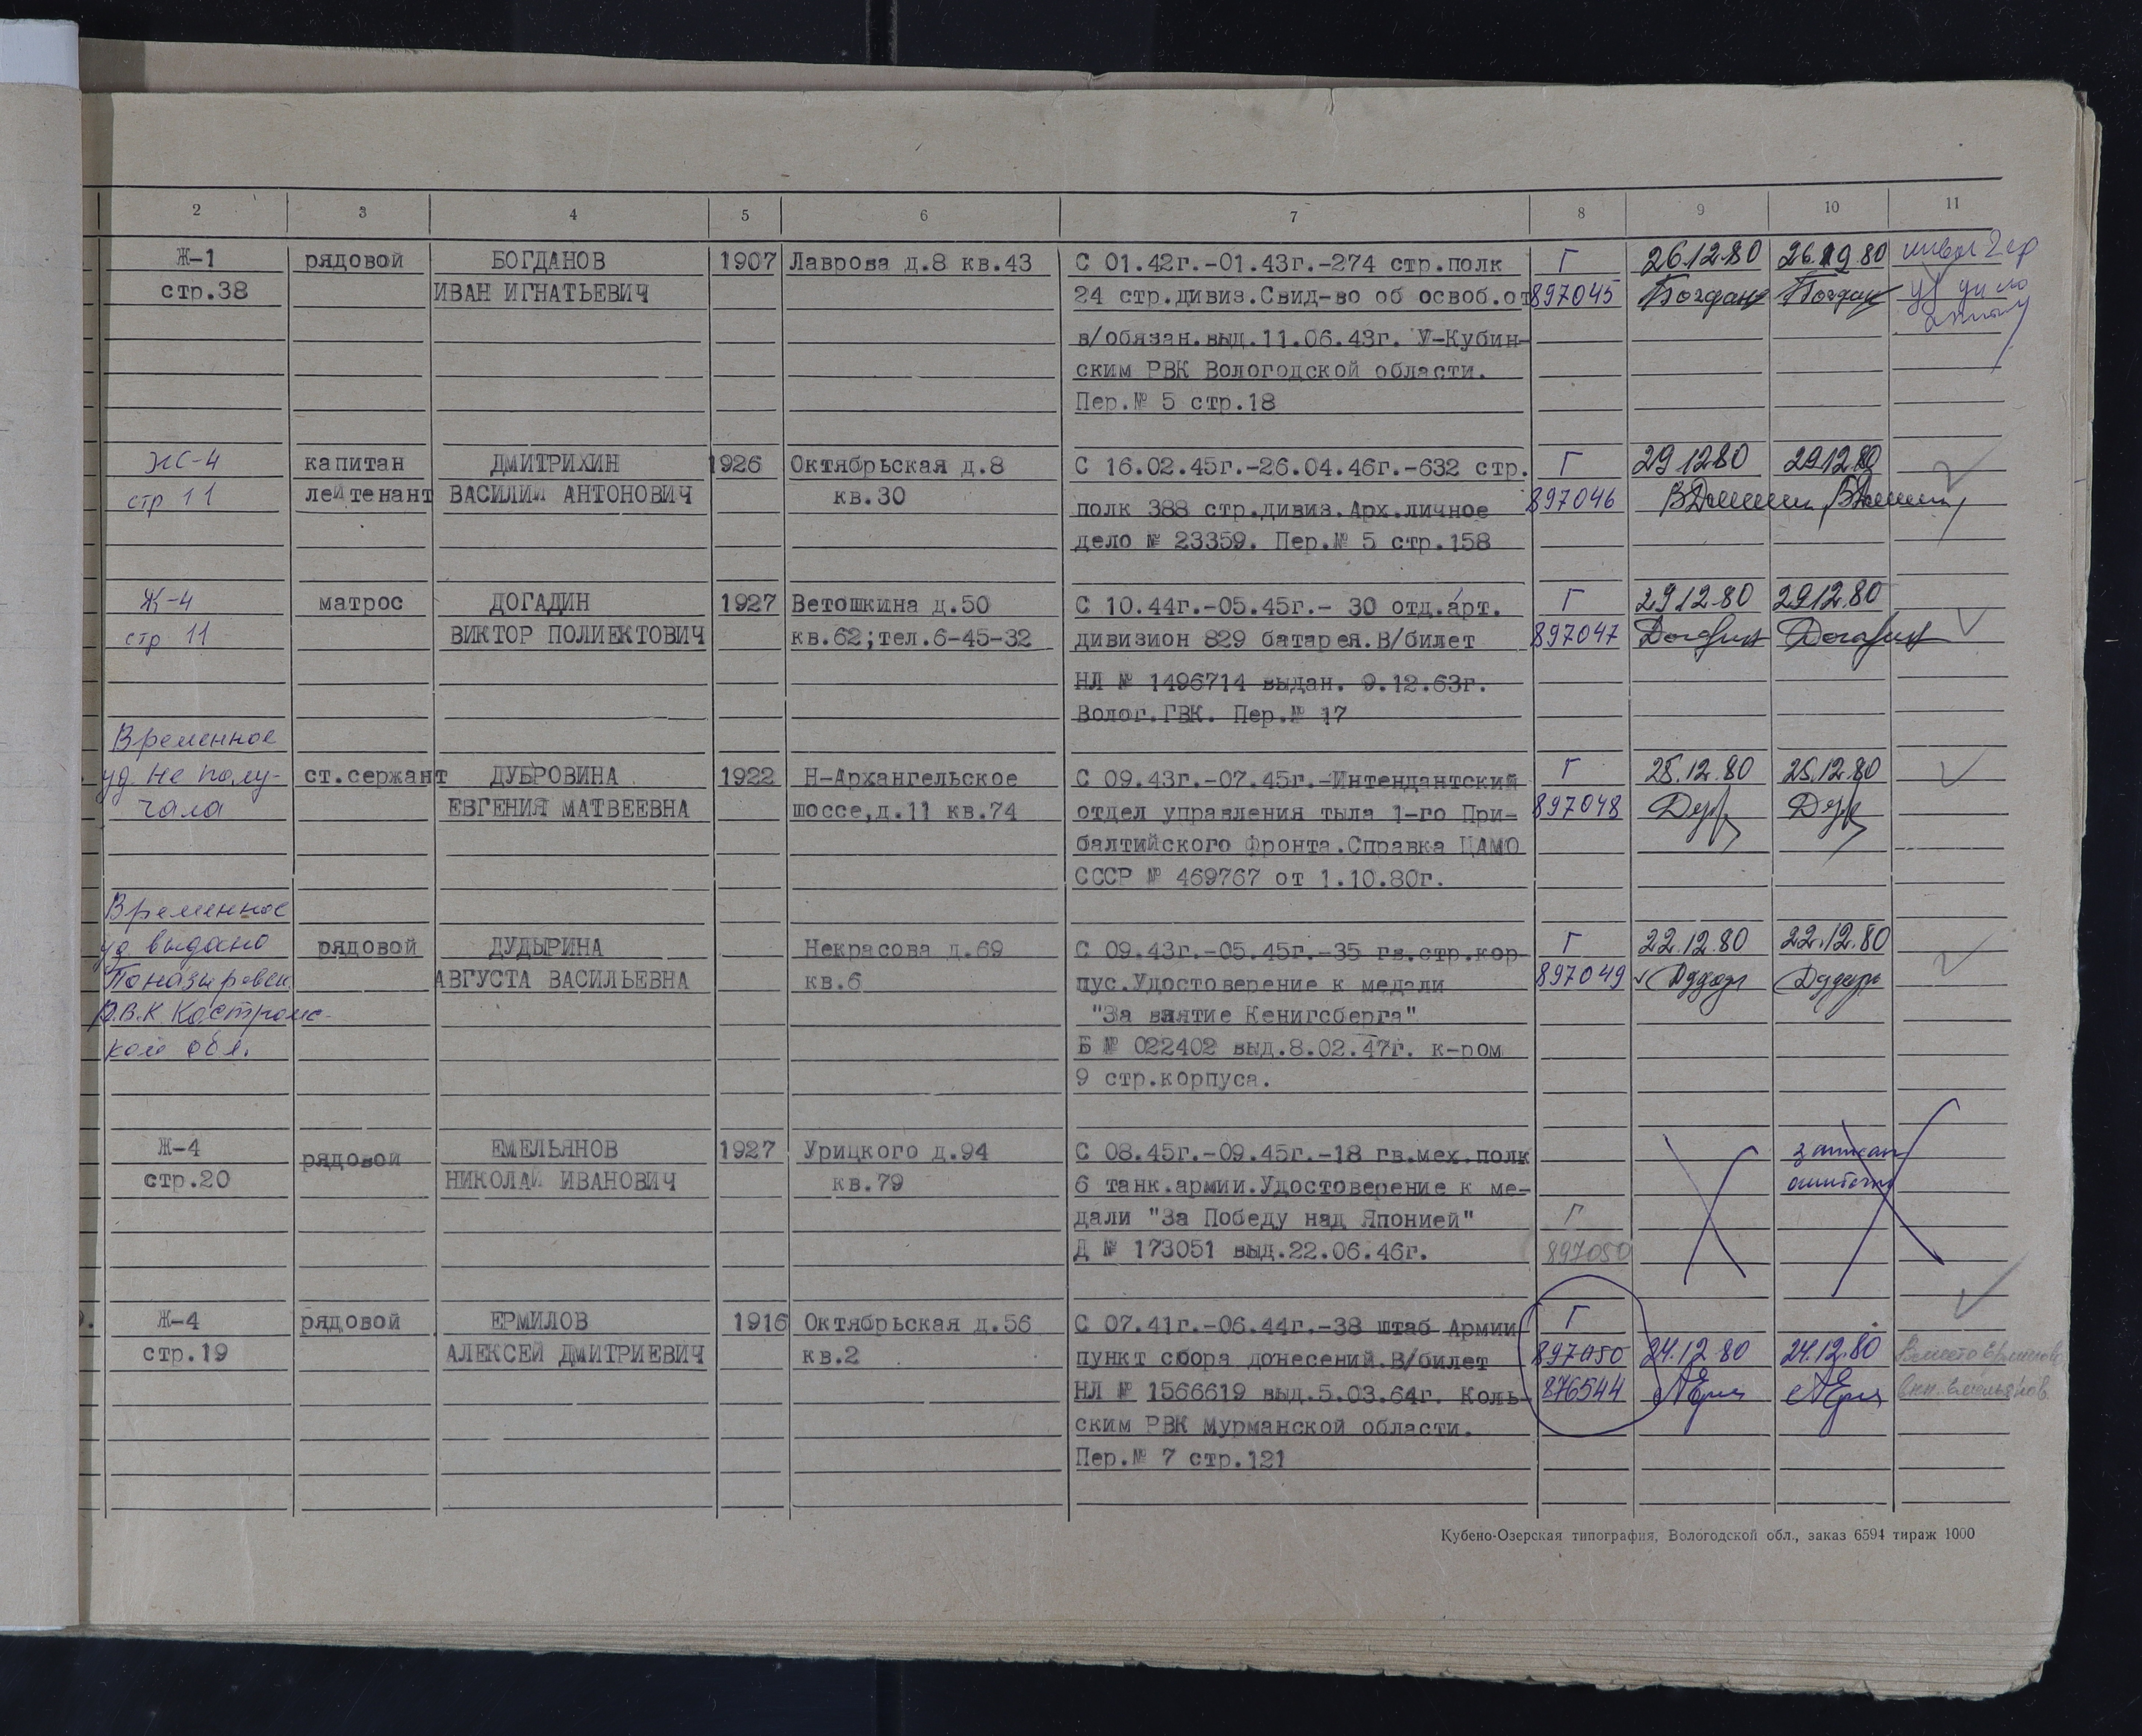 2 3 4 5 6 7 8 9 10 11
Ж-1 рядовой БОГДАНОВ 1907 Лаврова д.8 кв.43 С 01.42г.-01.43г.-274 стр.полк Г 26.12.80 26.12.80
стр.38 ИВАН ИГНАТЬЕВИЧ 24 стр.дивиз.Свид-во об освоб.от 897045
в/обязан.выд.11.06.43г. У-Кубин-
ским РВК Вологодской области.
Пер.№ 5 стр.18
Ж-4 капитан ДМИТРИХИН 1926 Октябрьская д.8 С 16.02.45г.-26.04.46г.-632 стр. Г 29.12.80 29.12.80
стр 11 лейтенант ВАСИЛИЙ АНТОНОВИЧ кв.30 полк 388 стр.дивиз.Арх.личное 897046
дело № 23359. Пер.№ 5 стр.158
Ж-4 матрос ДОГАДИН 1927 Ветошкина д.50 С 10.44г.-05.45г.- 30 отд.арт. Г 29.12.80 29.12.80
стр 11 ВИКТОР ПОЛИЕКТОВИЧ кв.62;тел.6-45-32 дивизион 829 батарея.В/билет 897047
НЛ № 1496714 выдан. 9.12.63г.
Волог.ГВК. Пер.№ 17
Временное
уд. не полу- ст.сержант ДУБРОВИНА 1922 Н-Архангельское С 09.43г.-07.45г.-Интендантский Г 25.12.80 25.12.80
чала ЕВГЕНИЯ МАТВЕЕВНА шоссе,д.11 кв.74 отдел управления тыла 1-го При- 897048
балтийского Фронта.Справка ЦАМО
СССР № 469767 от 1.10.80г.
Временное
уд выдано рядовой ДУДЫРИНА Некрасова д.69 С 09.43г.-05.45г.-35 гв.стр.кор- Г 22.12.80 22.12.80
Поназыревск. АВГУСТА ВАСИЛЬЕВНА кв.6 пус.Удостоверение к медали 897049
Р.В.К. Костромс- "За взятие Кенигсберга"
кой обл. Б № 022402 выд.8.02.47г. к-ром
9 стр.корпуса.
Ж-4 рядовой ЕМЕЛЬЯНОВ 1927 Урицкого д.94 С 08.45г.-09.45г.-18 гв.мех.полк записан
стр.20 НИКОЛАЙ ИВАНОВИЧ кв.79 6 танк.армии.Удостоверение к ме- ошибочно
дали "За Победу над Японией" Г
Д № 173051 выд.22.06.46г. 897050
Ж-4 рядовой ЕРМИЛОВ 1916 Октябрьская д.56 С 07.41г.-06.44г.-38 штаб Армии Г
стр.19 АЛЕКСЕЙ ДМИТРИЕВИЧ кв.2 пункт сбора донесений.В/билет 897050 24.12.80 24.12.80 вместо Ермилова
НЛ № 1566619 выд.5.03.64г. Коль- 876544
ским РВК Мурманской области.
Пер.№ 7 стр.121
Кубено-Озерская типография, Вологодской обл., заказ 6594 тираж 1000